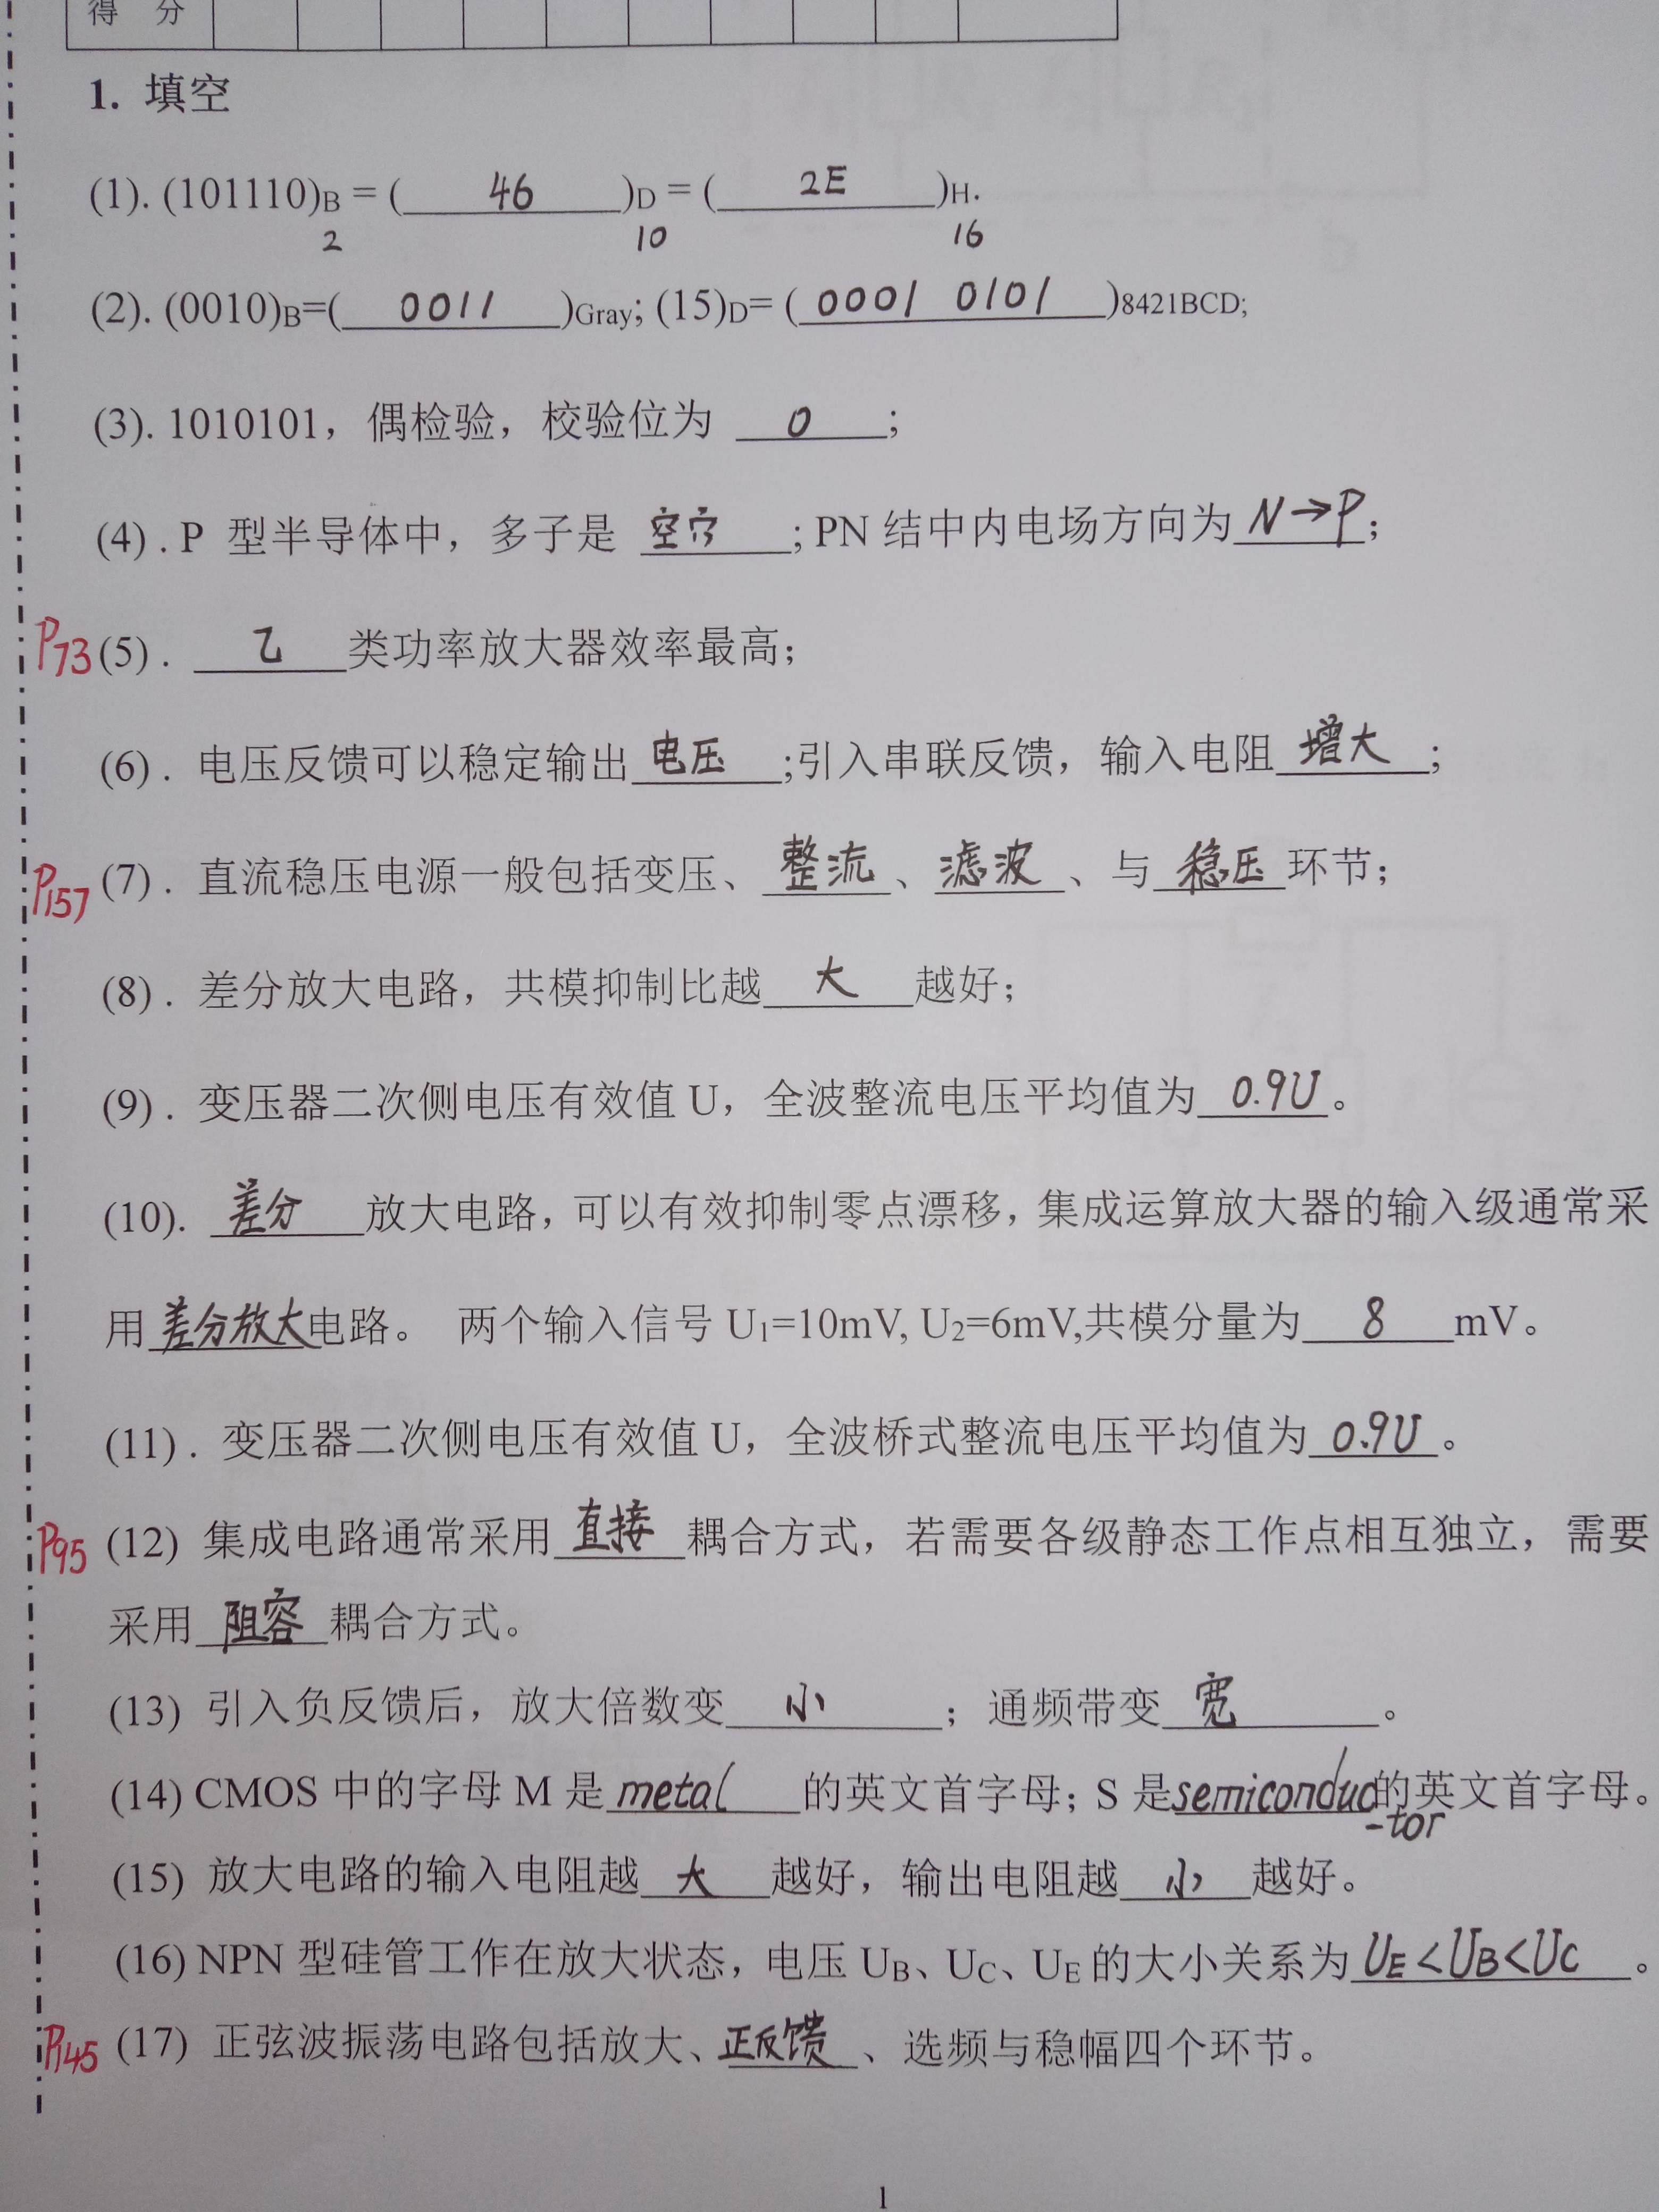 得 分
1. 填空
(1). (101110)B = ( 46 )D = ( 2E )H.
2 10 16
(2). (0010)B=( 0011 )Gray; (15)D= ( 0001 0101 )8421BCD;
(3). 1010101，偶检验，校验位为 0 ；
(4) . P 型半导体中，多子是 空穴 ; PN 结中内电场方向为 N→P ；
P73 (5) . 乙 类功率放大器效率最高；
(6) . 电压反馈可以稳定输出 电压 ;引入串联反馈，输入电阻 增大 ；
P157 (7) . 直流稳压电源一般包括变压、 整流 、 滤波 、与 稳压 环节；
(8) . 差分放大电路，共模抑制比越 大 越好；
(9) . 变压器二次侧电压有效值 U，全波整流电压平均值为 0.9U 。
(10). 差分 放大电路，可以有效抑制零点漂移，集成运算放大器的输入级通常采
用 差分放大 电路。 两个输入信号 U1=10mV, U2=6mV,共模分量为 8 mV。
(11) . 变压器二次侧电压有效值 U，全波桥式整流电压平均值为 0.9U 。
P95 (12) 集成电路通常采用 直接 耦合方式，若需要各级静态工作点相互独立，需要
采用 阻容 耦合方式。
(13) 引入负反馈后，放大倍数变 小 ；通频带变 宽 。
(14) CMOS 中的字母 M 是 metal 的英文首字母；S 是 semiconduc 的英文首字母。
-tor
(15) 放大电路的输入电阻越 大 越好，输出电阻越 小 越好。
(16) NPN 型硅管工作在放大状态，电压 UB、UC、UE 的大小关系为 UE<UB<UC 。
P145 (17) 正弦波振荡电路包括放大、 正反馈 、选频与稳幅四个环节。
1